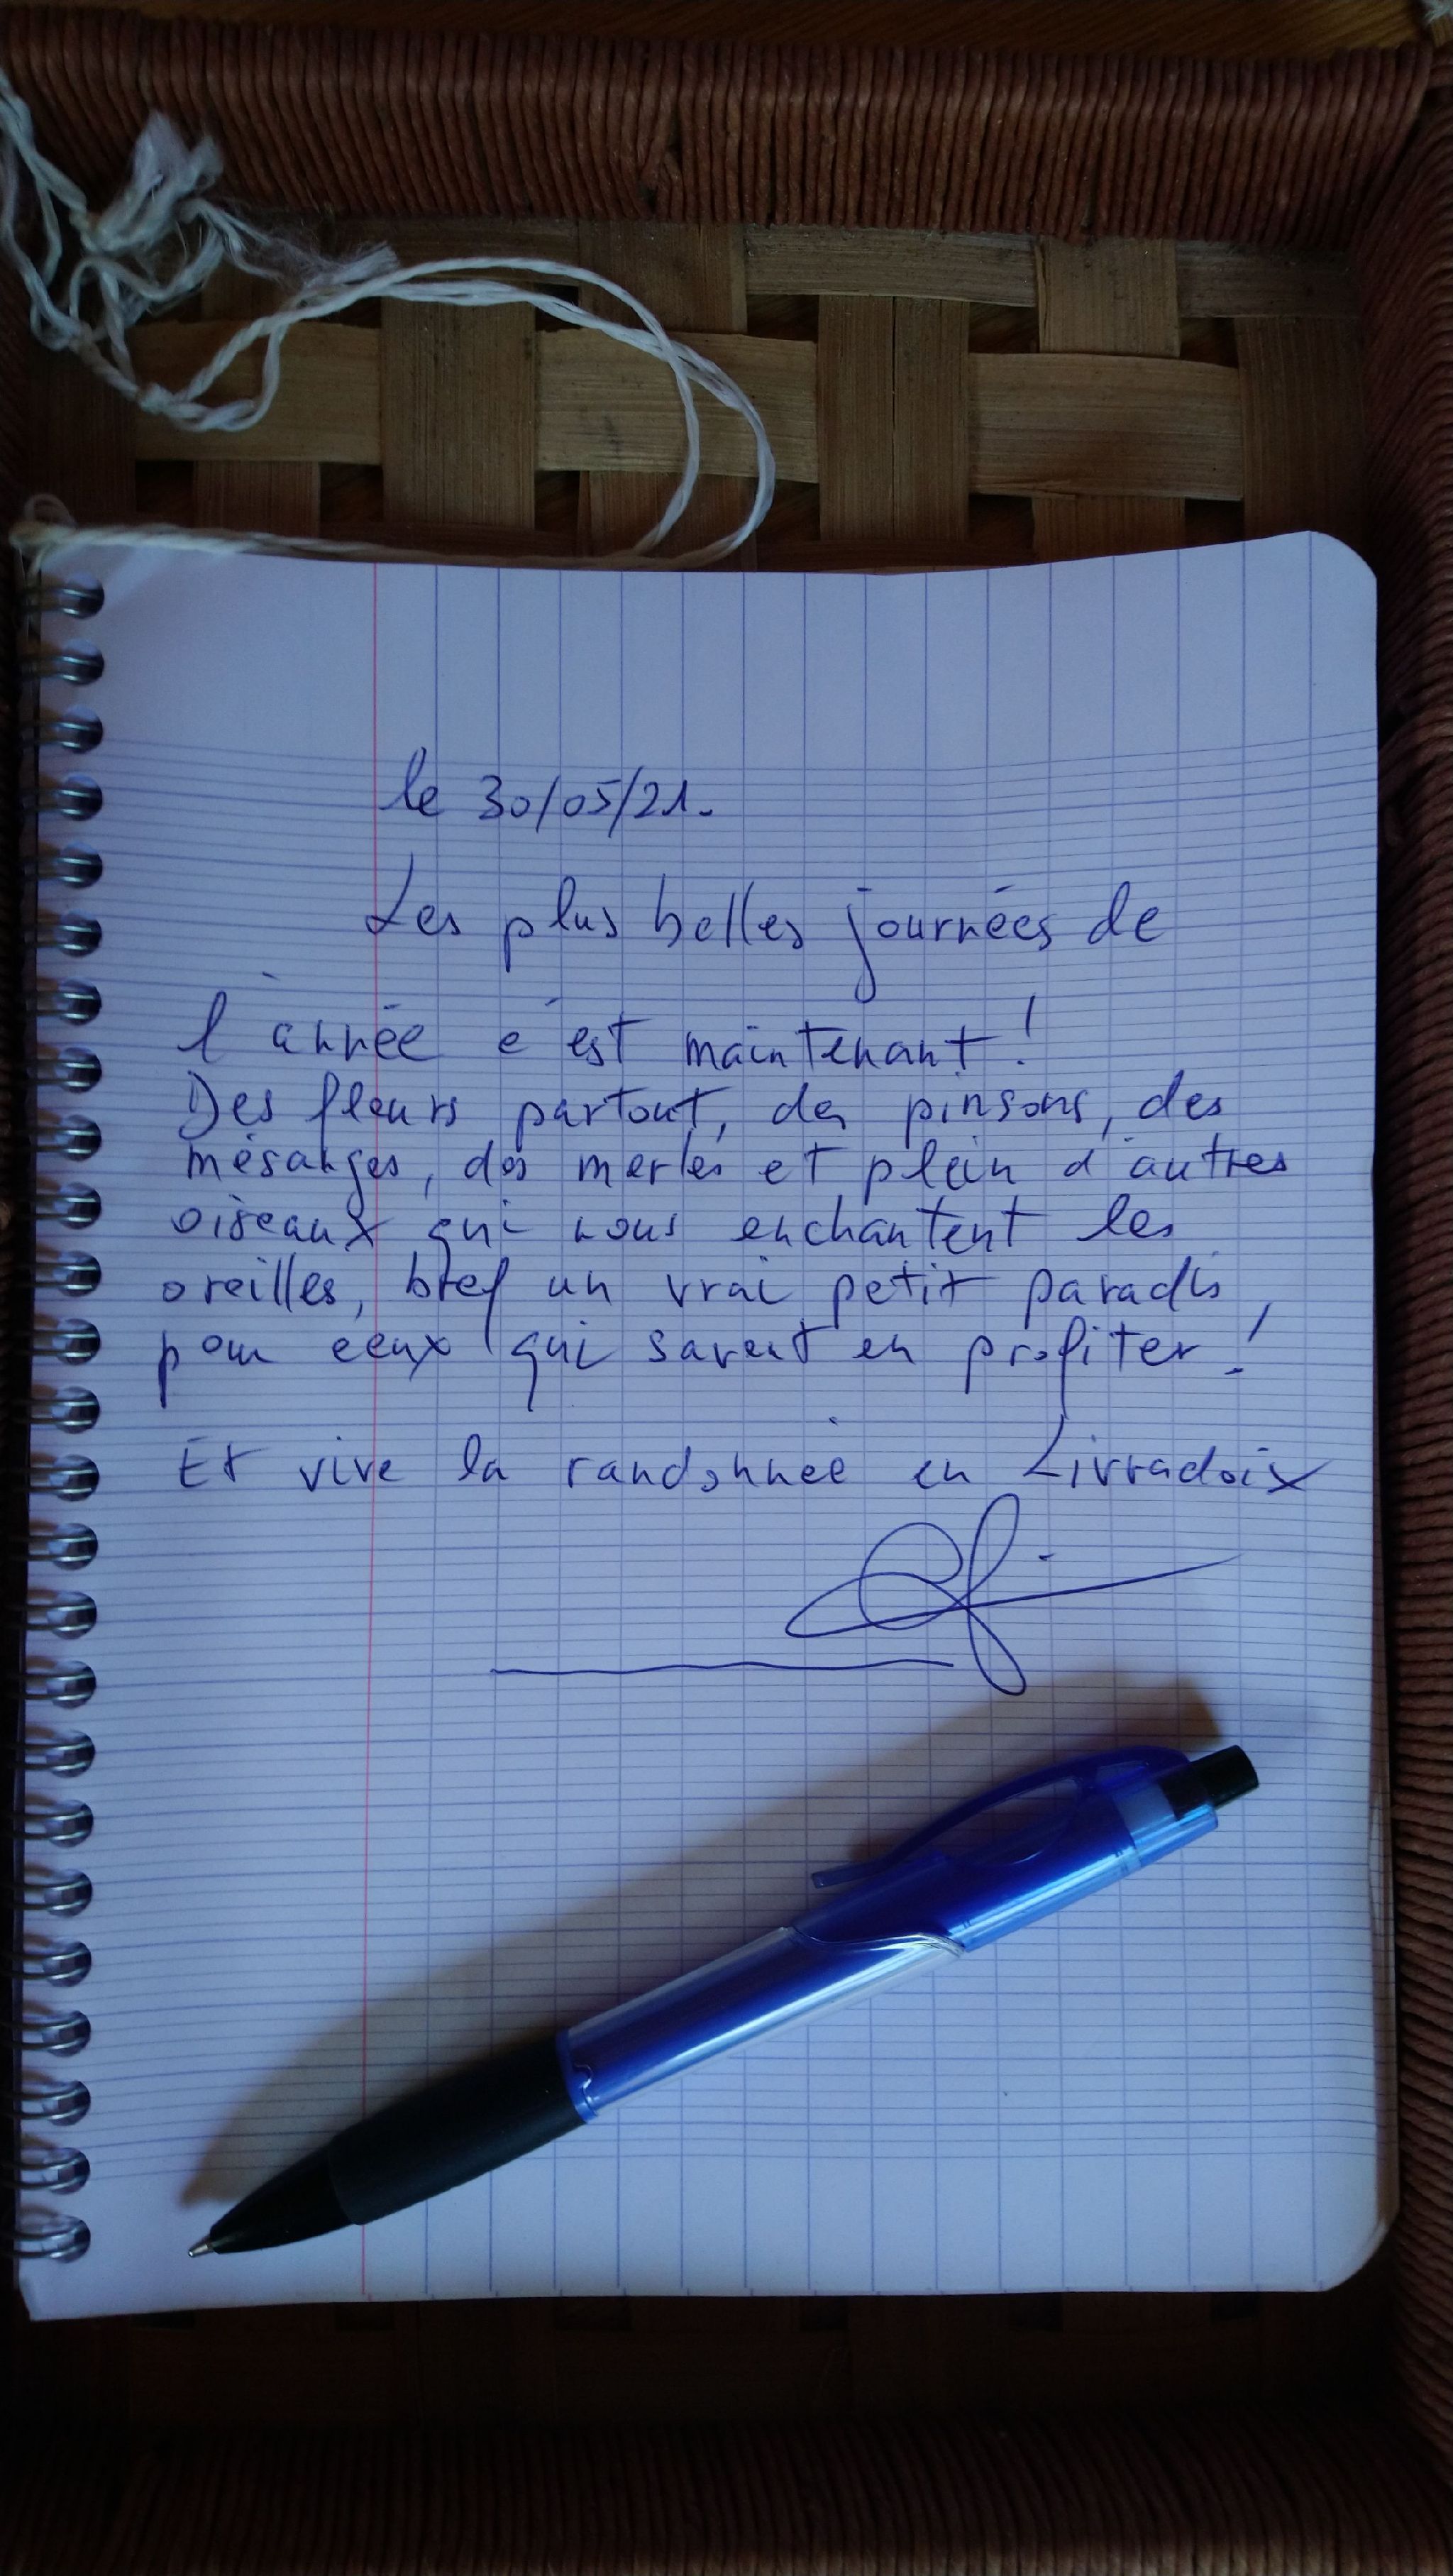 le 30/05/21.
Les plus belles journées de
l'année c'est maintenant !
Des fleurs partout, des pinsons, des
mésanges, des merles et plein d'autres
oiseaux qui nous enchantent les
oreilles, bref un vrai petit paradis
pour ceux qui savent en profiter !
Et vive la randonnée en Livradoix